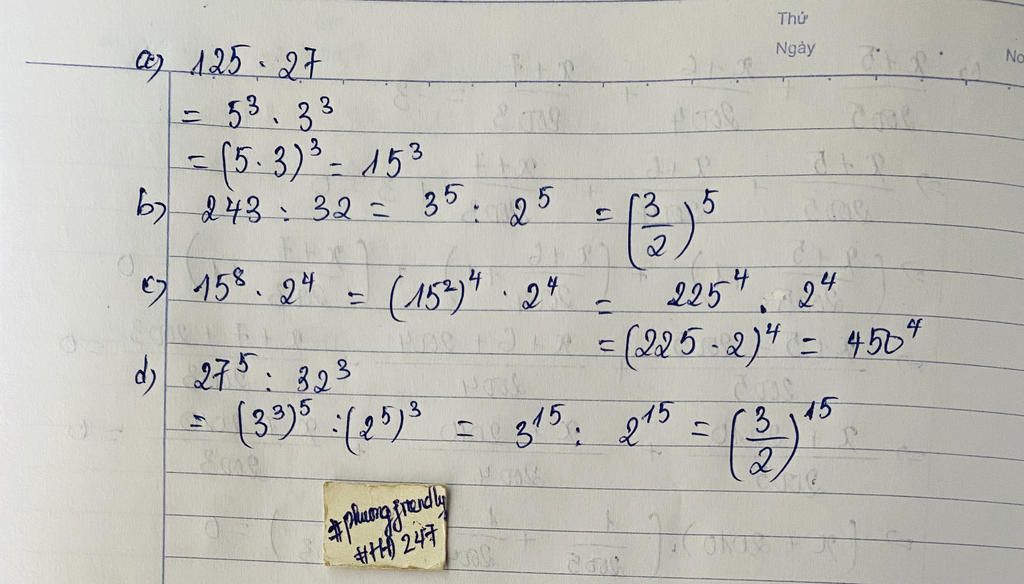 Thứ
Ngày
No
a) 125 . 27
= 5³ . 3³
= (5 . 3)³ = 15³
b) 243 : 32 = 3⁵ : 2⁵ = (3/2)⁵
c) 15⁸ . 2⁴ = (15²)⁴ . 2⁴ = 225⁴ . 2⁴
= (225 . 2)⁴ = 450⁴
d) 27⁵ : 32³
= (3³)⁵ : (2⁵)³ = 3¹⁵ : 2¹⁵ = (3/2)¹⁵
#phuongfriendly
247